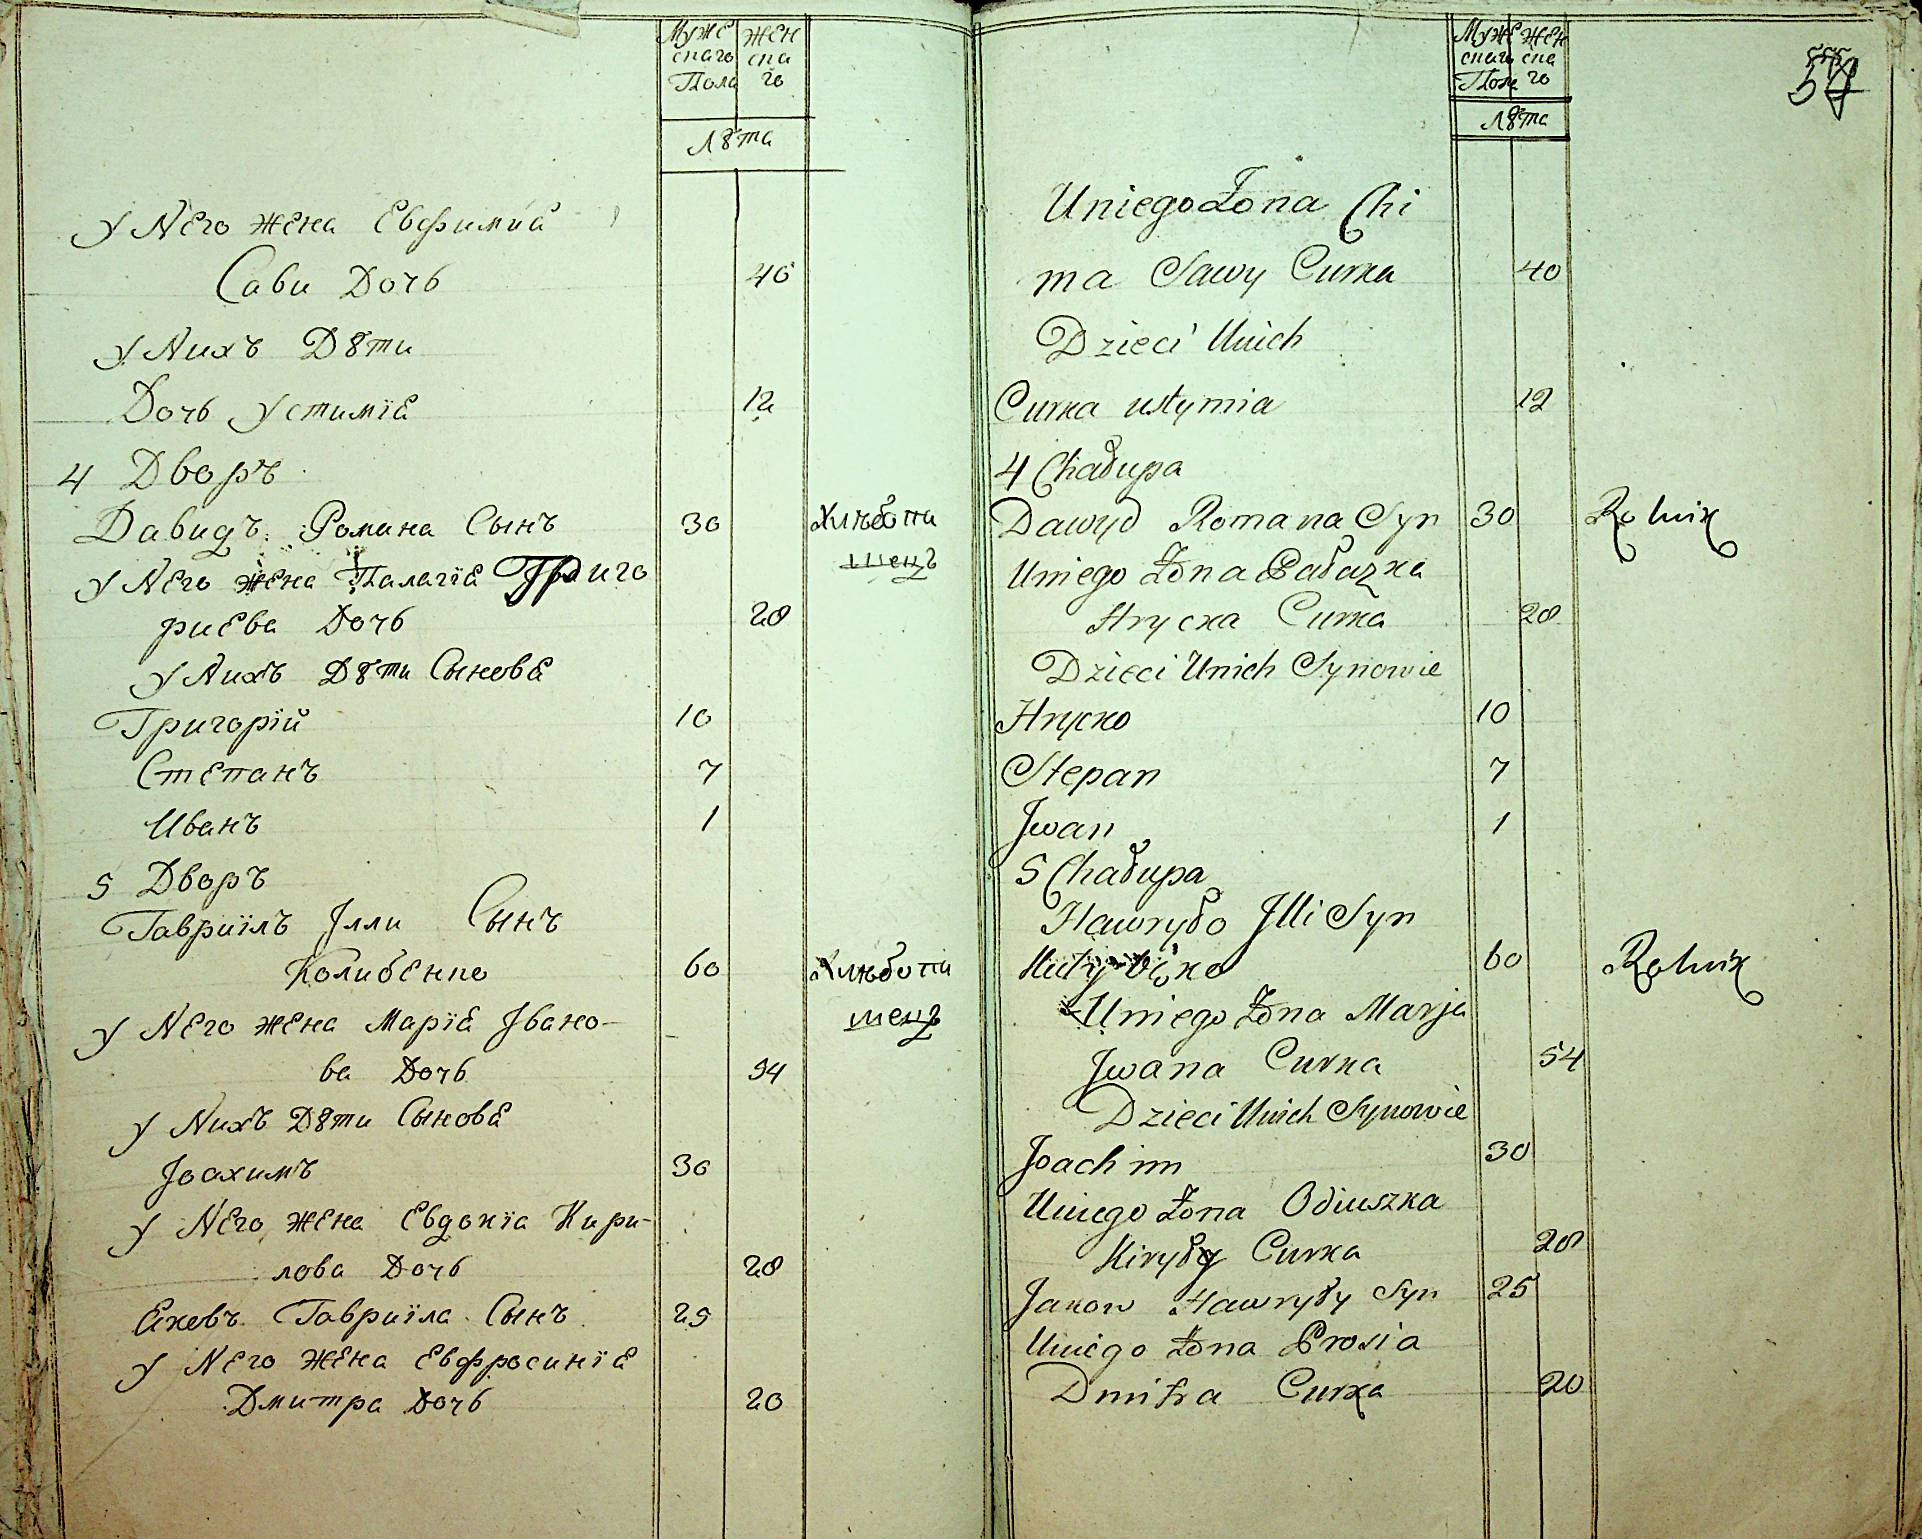 Муже
скаго
Пола
Жен
ска
го
Лѣта
У Него жена Евфимиѣ
Сави Дочь 40
У Нихъ Дѣти
Дочь Устиміѣ 12
4 Дворъ
Давидъ Романа Сынъ 30 Хлѣбопа
шецъ
У Него жена Палагіѣ Григо
риева Дочь 28
У Нихъ Дѣти Сыновѣ
Григорій 10
Степанъ 7
Иванъ 1
5 Дворъ
Гавриілъ Ілли Сынъ
Колибенко 60 Хлѣбопа
шецъ
У Него жена Маріѣ Івано-
ва Дочь 54
У Нихъ Дѣти Сыновѣ
Іоахимъ 30
У Него жена Евдокіа Кири-
лова Дочь 28
Гавриіла Сынъ 25
У Него жена Евфросиніѣ
Дмитра Дочь 20
Муже
скаго
Пола
Жен
ска
го
Лѣта
U niego Żona Chi
ma Sawy Curka 40
Dzieci Unich
Curka ustymia 12
4 Chałupa
Dawyd Romana Syn 30 Rolnik
Uniego Żona Pałazka
Hrycka Curka 28
Dzieci Unich Synowie
Hrycko 10
Stepan 7
Jwan 1
5 Chałupa
Hawryło Jlli Syn
60 Rolnik
Uniego Żona Marja
Jwana Curka 54
Dzieci Unich Synowie
Joachim 30
Uniego Żona Odiuszka
Kiryły Curka 28
Jakow Hawryły Syn 25
Uniego Żona Prosia
Dmitra Curka 20